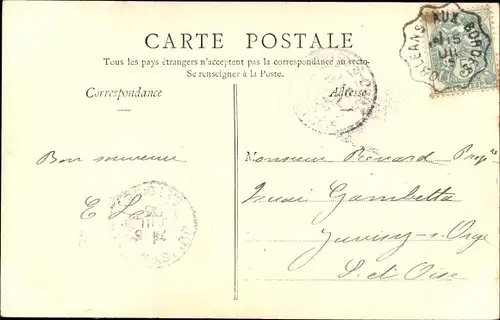 CARTE POSTALE
Tous les pays étrangers n'acceptent pas la correspondance au recto.
Se renseigner à la Poste.
Correspondance
Adresse
ORLEANS AUX BORDES
Bon souvenir
Monsieur Renard Prop
Quai Gambetta
Juvisy-s-Orge
S. et Oise